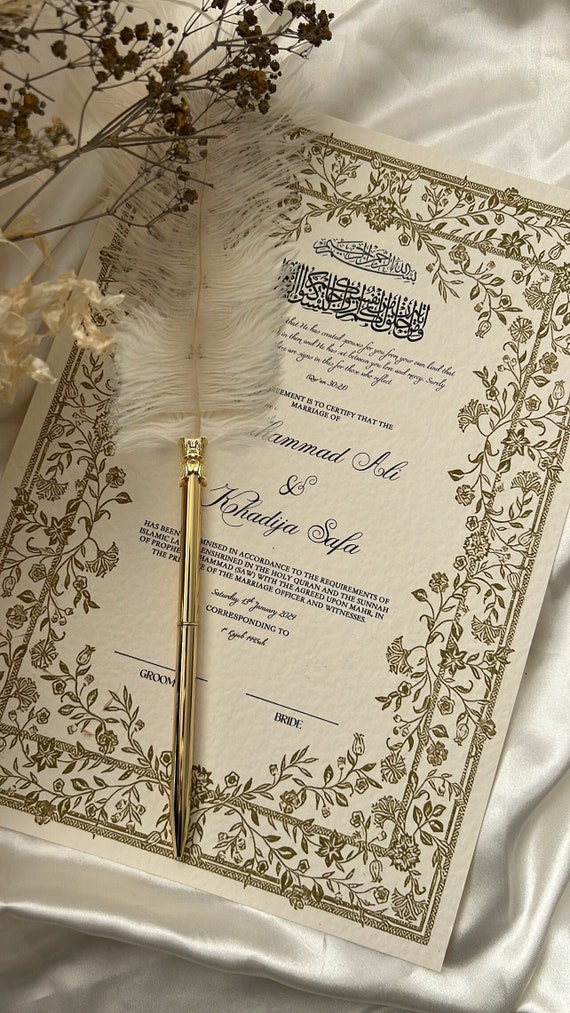 بسم الله الرحمن الرحيم
that He has created spouses for you from your own kind that
in them, and He has set between you love and mercy. Surely
there are signs in this for those who reflect
(Qur'an 30:21)
AGREEMENT IS TO CERTIFY THAT THE
MARRIAGE OF
Ali
&
Khadija Safa
HAS BEEN IN ACCORDANCE TO THE REQUIREMENTS OF
ISLAMIC ENSHRINED IN THE HOLY QURAN AND THE SUNNAH
OF PROPHET (SAW) WITH THE AGREED UPON MAHR, IN
THE OF THE MARRIAGE OFFICER AND WITNESSES.
Saturday 13th January 2024
CORRESPONDING TO
1st Rajab 1445h
GROOM
BRIDE